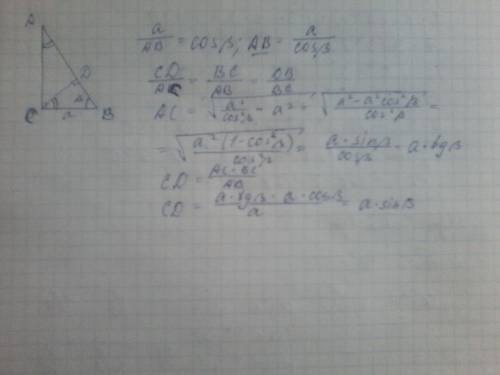 A
D
C a B
a/AB = cosβ; AB = a/cosβ
CD/AC = BC/AB = DB/BC
AC = √(a²/cos²β - a²) = √((a² - a²cos²β)/cos²β) =
= √(a²(1-cos²β)/cos²β) = a·sinβ/cosβ = a·tgβ
CD = AC·BC/AB
CD = a·tgβ · a·cosβ/a = a·sinβ